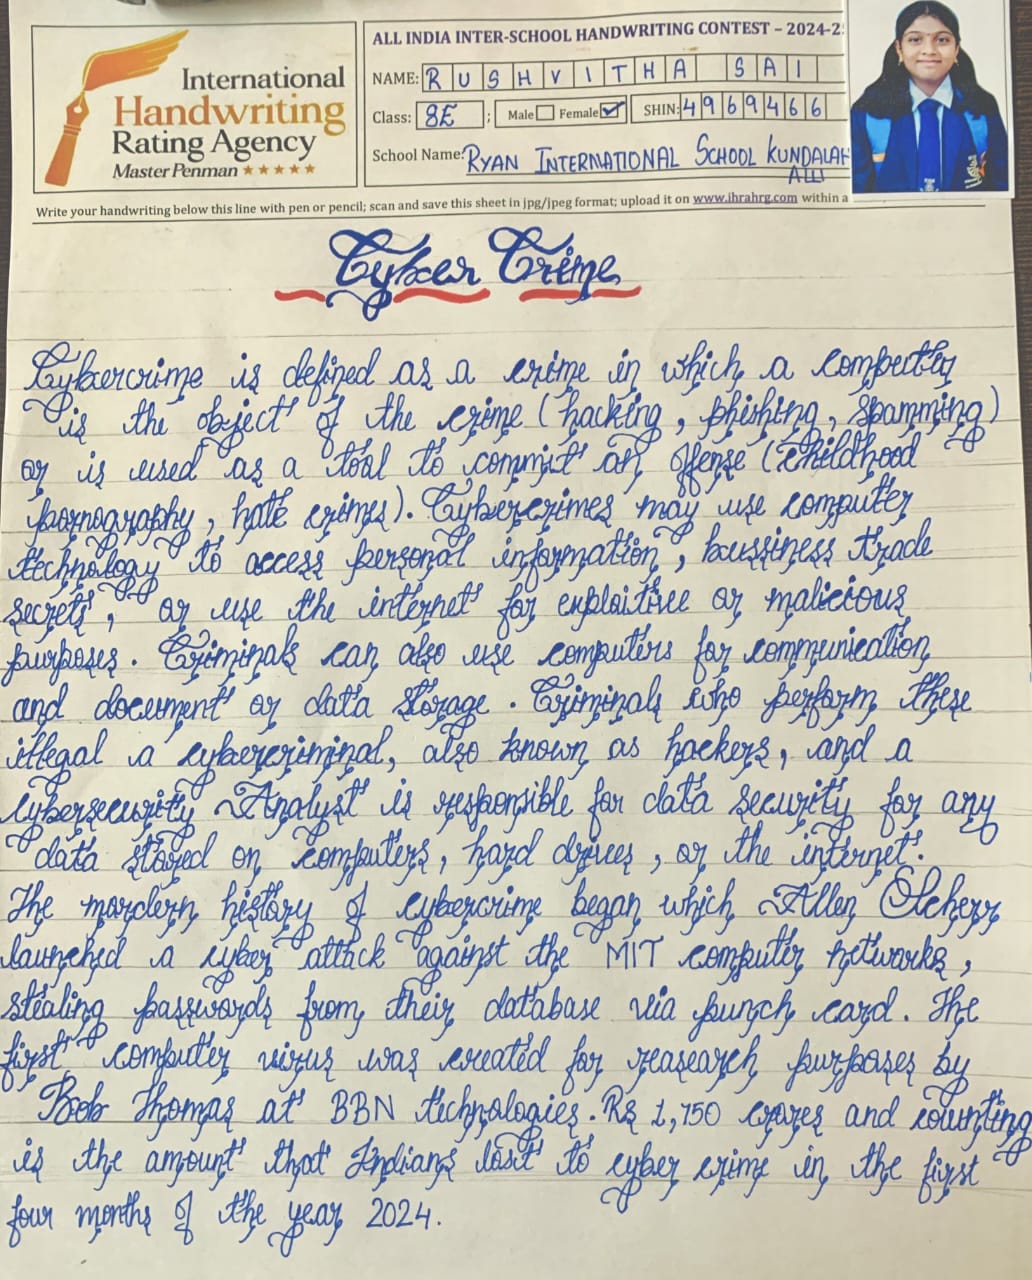 International
Handwriting
Rating Agency
Master Penman ★★★★★
ALL INDIA INTER-SCHOOL HANDWRITING CONTEST – 2024-2
NAME: RUSHVITHA SAI
Class: 8E ; Male Female ✓ SHIN: 4969466
School Name: RYAN INTERNATIONAL SCHOOL KUNDALAH
ALLI
Write your handwriting below this line with pen or pencil; scan and save this sheet in jpg/jpeg format; upload it on www.ihrahrg.com within a
Cyber Crime
Cybercrime is defined as a crime in which a
is the object of the crime (hacking, phishing, spamming)
or is used as a tool to commit an offense (Childhood
pornography, hate crimes). Cybercrimes may use computer
technology to access personal information, bussiness trade
secrets, or use the internet for exploitive or malicious
purposes. Criminals can also use computers for communication
and document or data storage. Criminals who perform these
illegal a cybercriminal, also known as hackers, and a
cybersecurity Analyst is responsible for data security for any
data stored on computers, hard drives, or the internet.
The mordern history of cybercrime began which Allen Scherr
launched a cyber attack against the MIT computer networks,
stealing passwords from their database via punch card. The
first computer virus was created for reasearch purposes by
Bob Thomas at BBN technologies. Rs 1,750 crores and counting
is the amount that Indians lost to cyber crime in the first
four months of the year 2024.